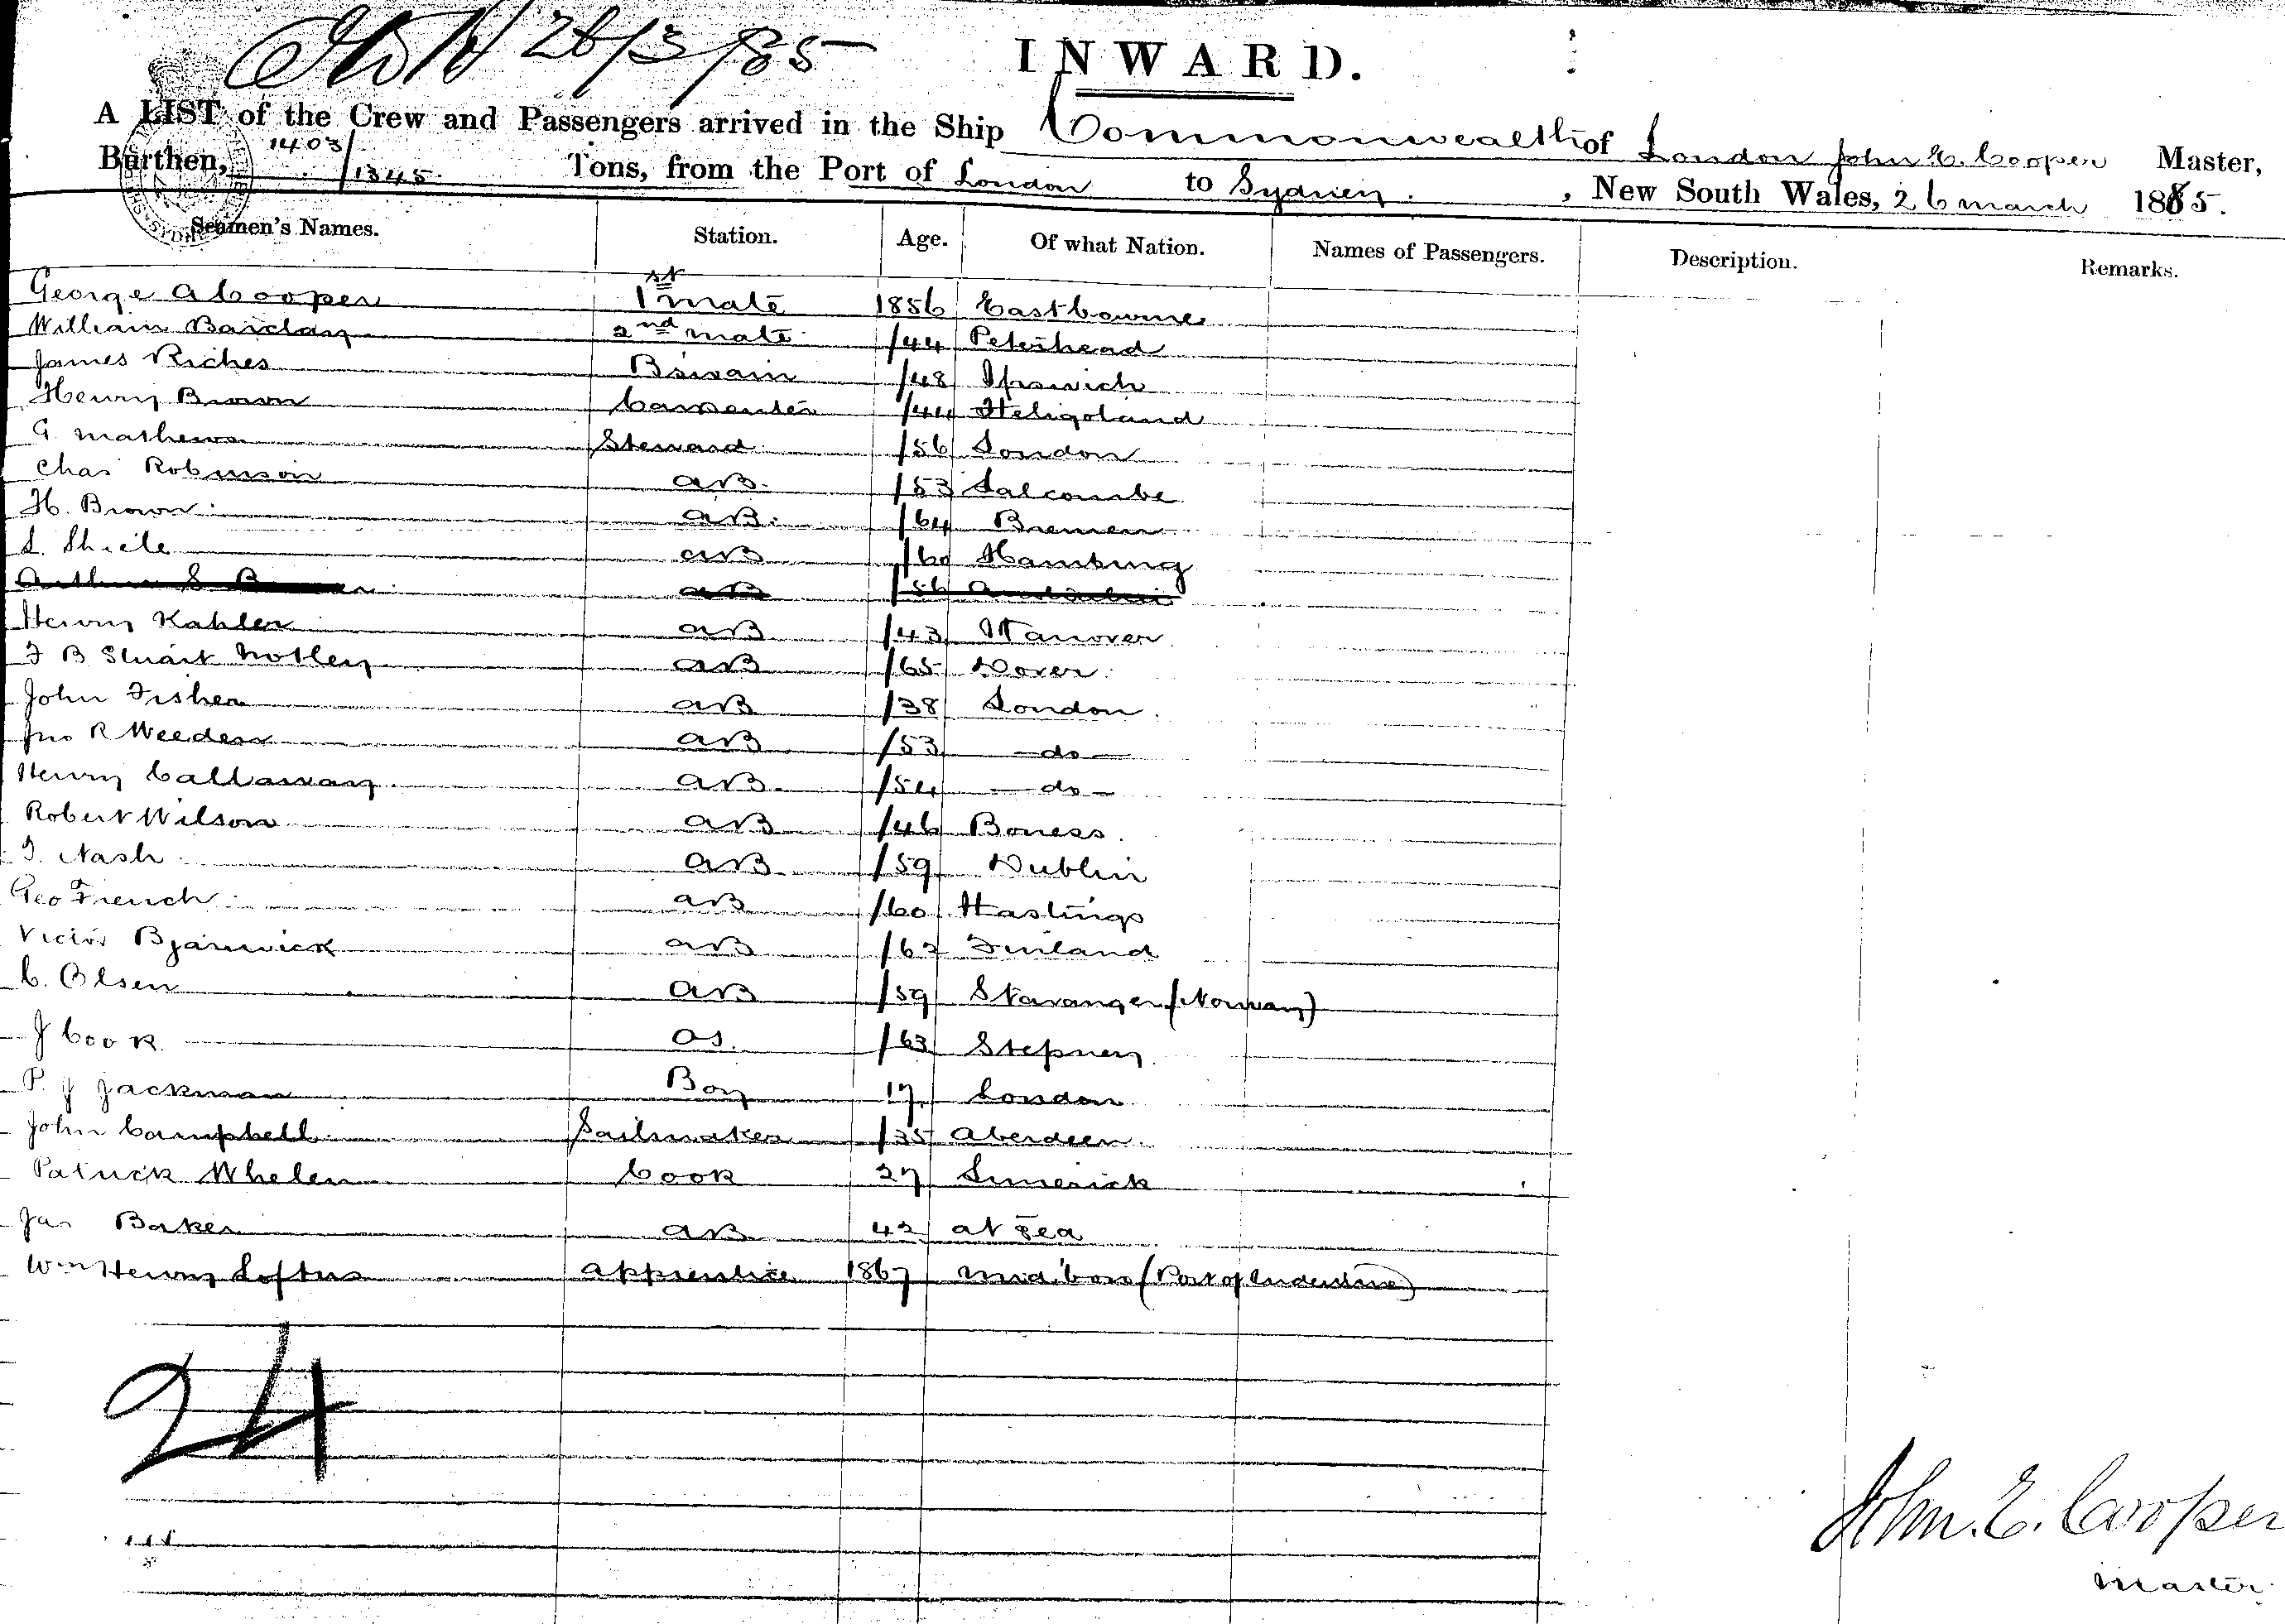 26/3/85
INWARD.
A LIST of the Crew and Passengers arrived in the Ship Commonwealth of London John E. Cooper Master,
Burthen, 1403/1345 Tons, from the Port of London to Sydney, New South Wales, 26 March 1885.
Seamen's Names. Station. Age. Of what Nation. Names of Passengers. Description. Remarks.
George A Cooper 1st mate 1856 Eastbourne
William Barclay 2nd mate /44 Peterhead
James Riches Bswain /48 Ipswich
Henry Brown Carpenter /44 Heligoland
G. Mathews Steward /56 London
Chas Robinson AB. /53 Salcombe
H. Brown AB. /64 Bremen
S. AB /60 Hamburg
AB /56
Henry Kahler AB /43 Hanover
F B Stuart Notley AB /65 Dover
John Fisher AB /38 London
Jno R Weeden AB /53 -do-
Henry Callaway AB /54 -do-
Robert Wilson AB /46 Boness
Nash AB /59 Dublin
Geo French AB /60 Hastings
Victor AB /62 Finland
C. Olsen AB /59 Stavanger (Norway)
J Cook OS. /63 Stepney
P. J Jackman Boy 17 London
John Campbell Sailmaker /35 Aberdeen
Patrick Whelen Cook 27 Limerick
Jas Baker AB 42 at Sea
Wm Henry Loftus apprentice 1867
24
John. E. Cooper
Master